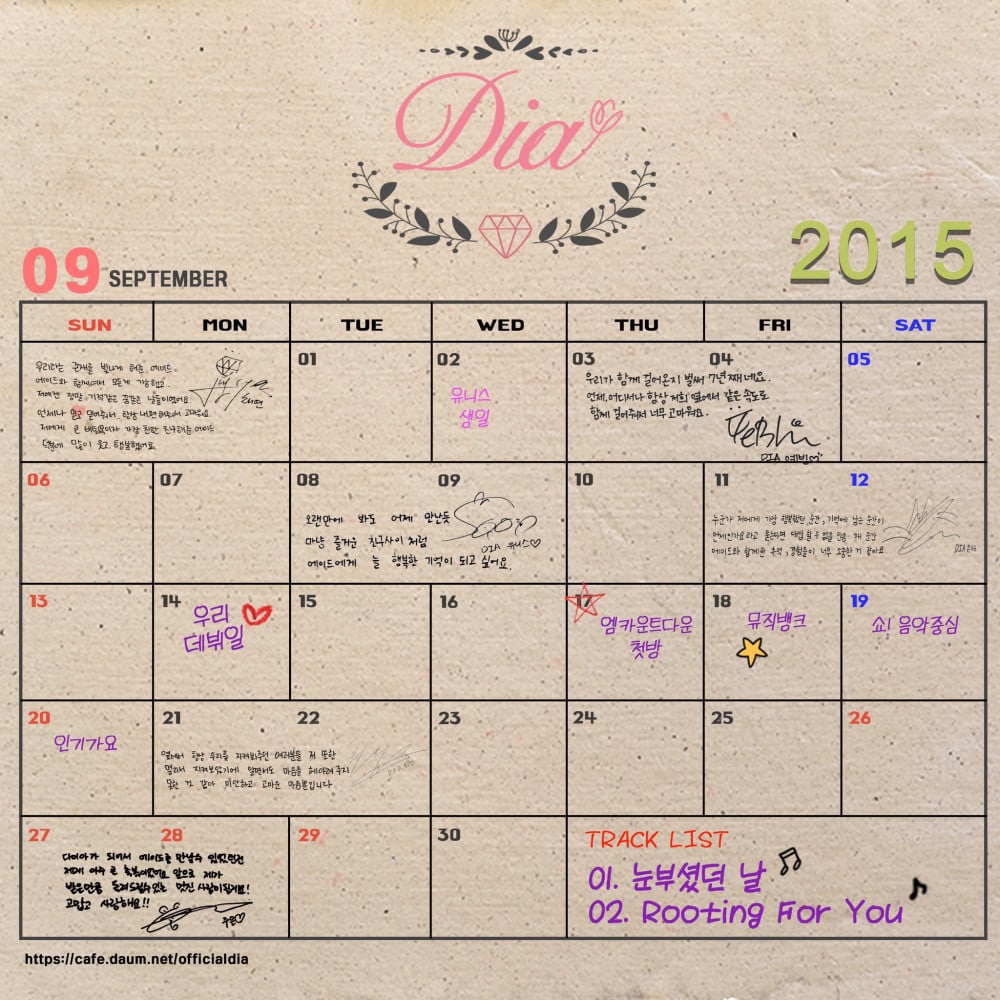 Dia
2015
09 SEPTEMBER
SUN MON TUE WED THU FRI SAT
우리라는 존재를 빛나게 해준 에이드.
에이드와 함께여서 모든게 가능했고.
저에겐 정말 기적같은 꿈같은 날들이었어요.
언제나 믿고 믿어주셔서, 항상 내편해주셔서 고마워요
저에게 큰 버팀목이자 가장 친한 친구해준 에이드
덕분에 많이 웃고, 행복했어요.
01
02
유니스
생일
03
04
우리가 함께 걸어온지 벌써 7년째네요.
언제,어디서나 항상 저희 옆에서 같은 속도로
함께 걸어줘서 너무 고마워요.
DIA 예빈♡
05
06
07
08
09
오랜만에 봐도 어제 만난듯
마냥 즐거운 친구사이 처럼
에이드에게 늘 행복한 기억이 되고 싶어요.
DIA 유니스♡
10
11
12
누군가 저에게 가장 행복했던 순간, 기억에 남는 순간이
언제인가요라고 물으면 대답할 수 없을 만큼 매 순간
에이드와 함께한 추억, 경험들이 너무 소중한 거 같아요.
DIA
13
14
우리
데뷔일
15
16
17
엠카운트다운
첫방
18
뮤직뱅크
19
쇼! 음악중심
20
인기가요
21
22
옆에서 항상 우리를 지켜봐주던 여러분들 저 또한
옆에서 지켜보았기에 알면서도 마음을 헤아려주지
못한 것 같아 미안하고 고마운 마음뿐입니다.
23
24
25
26
27
28
다이아가 되어서 에이드를 만날수 있었던건
저에게 아주 큰 축복이었어요 앞으로 제가
받은만큼 돌려드릴수있는 멋진 사람이될게요!
고맙고 사랑해요!!
주은♡
29
30
TRACK LIST
01. 눈부셨던 날
02. Rooting For You
https://cafe.daum.net/officialdia